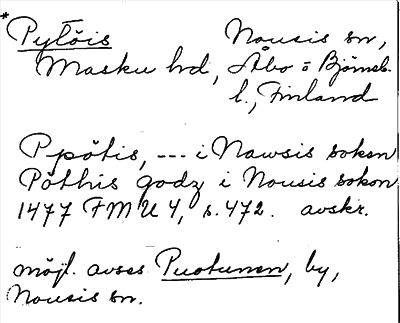 *Pytöis Nousis sn,
Masku hd, Åbo o Björneb.
l., Finland
Ppötis, --- i Nawsis soken
Pöthis godz i Nousis sokon
1477 FMU 4, s. 472. avskr.
möjl. avses Puotunen, by,
Nousis sn.